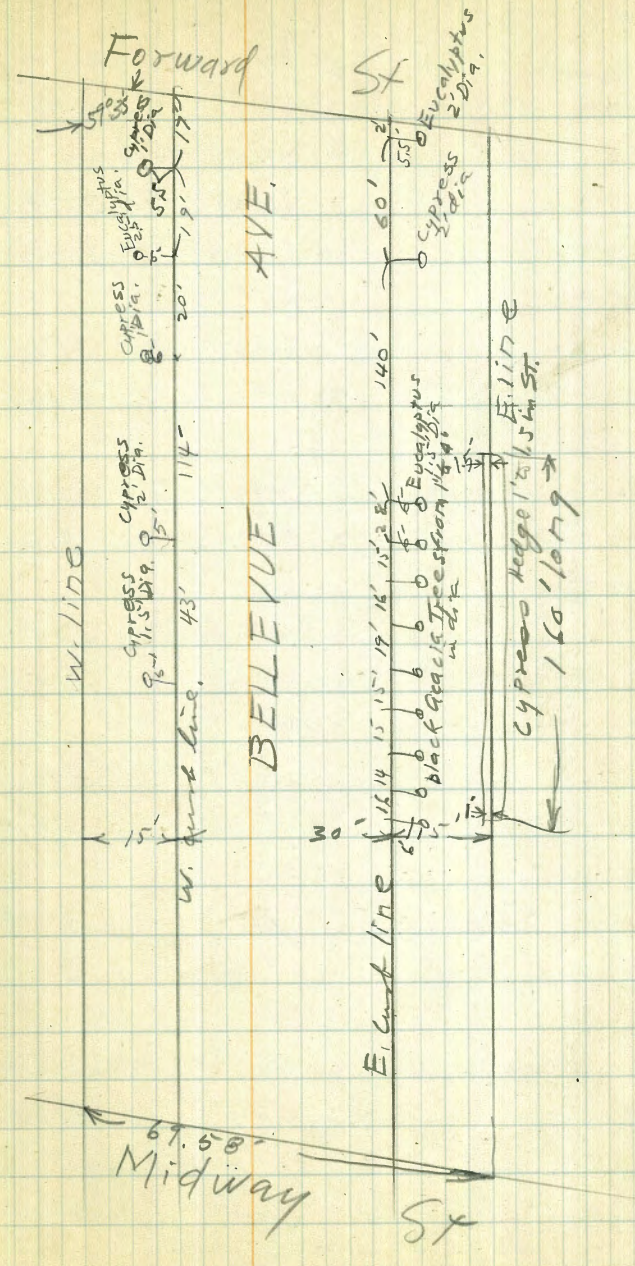 Forward St
59° 55'
Cypress
1' Dia
19'
5.5
Eucalyptus
2.5' Dia.
5'
19'
Cypress
1' Dia.
20'
Cypress
2' Dia.
114'
5'
Cypress
1.5' Dia.
43'
5'
W. line
W. Curb line.
15'
BELLEVUE AVE.
30'
2'
5.5'
Eucalyptus
2' Dia.
60'
Cypress
2' dia
140'
Eucalyptus
1.5' Dia
28'
15'
16'
19'
15'
15
14
16
6'
black Acacia Trees from 1' to
in dia
E. Curb line
E. line
1.5'
1'
Cypress Hedge 1' to 1.5' in St.
160' long
69.58'
Midway St